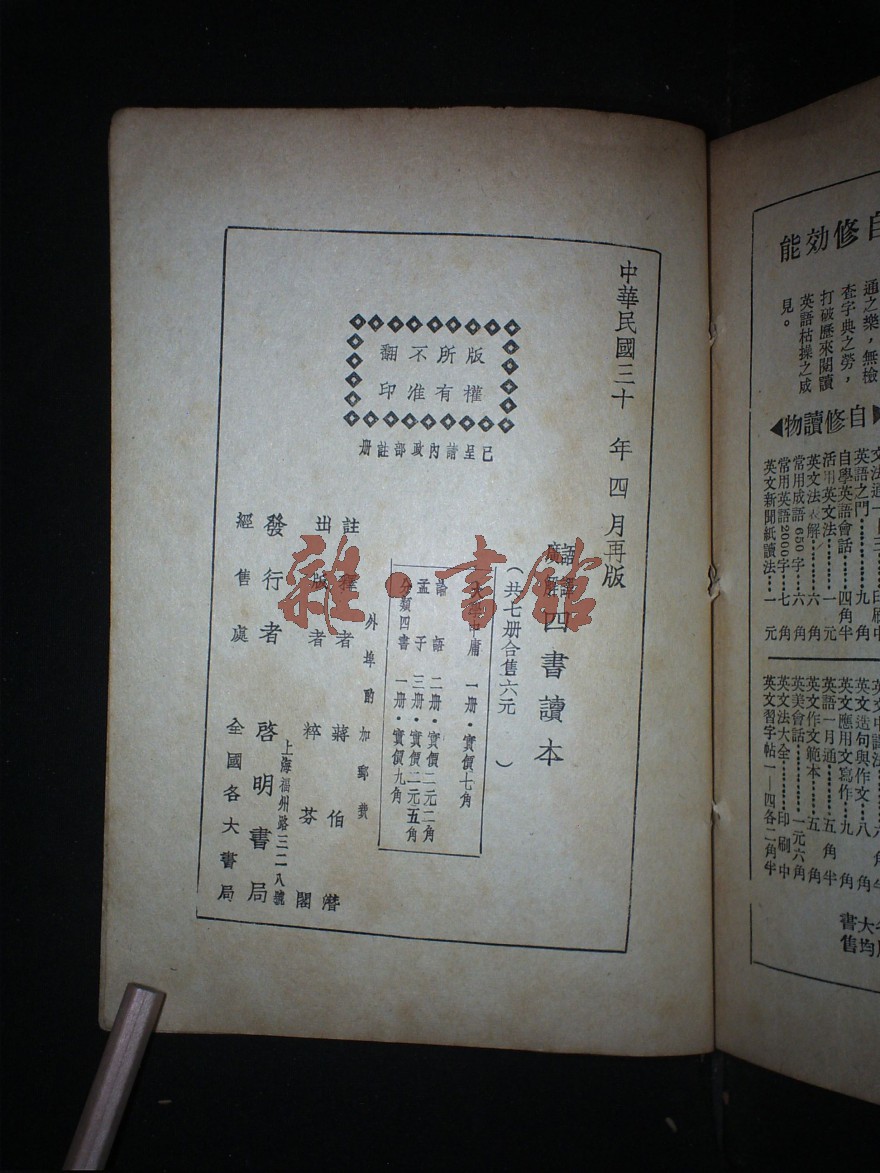 中華民國三十年四月再版
語譯廣解四書讀本
（共七册合售六元）
大學中庸 一册・實價七角
論語 二册・實價二元二角
孟子 三册・實價二元五角
分類四書 一册・實價九角
外埠酌加郵費
註釋者 蔣伯潛
出版者 粹芬閣
上海福州路三二八號
發行者 啓明書局
經售處 全國各大書局
版權所有
不准翻印
已呈請內政部註册
雜・書館
自修効能
通之樂，無檢
查字典之勞，
打破歷來閱讀
英語枯操之成
見。
自修讀物
英語之門……九角
自學英語會話……四角半
活用英文法……一元
英文法表解……六角
常用成語650字……六角
常用英語2000字……七角
英文新聞紙讀法……一元
英文造句與作文……八角
英文應用文寫作……九角
英語一月通……五角半
英文作文範本……五角
英美會話……一元六角
英文法大全……印刷中
英文習字帖一—四各二角半